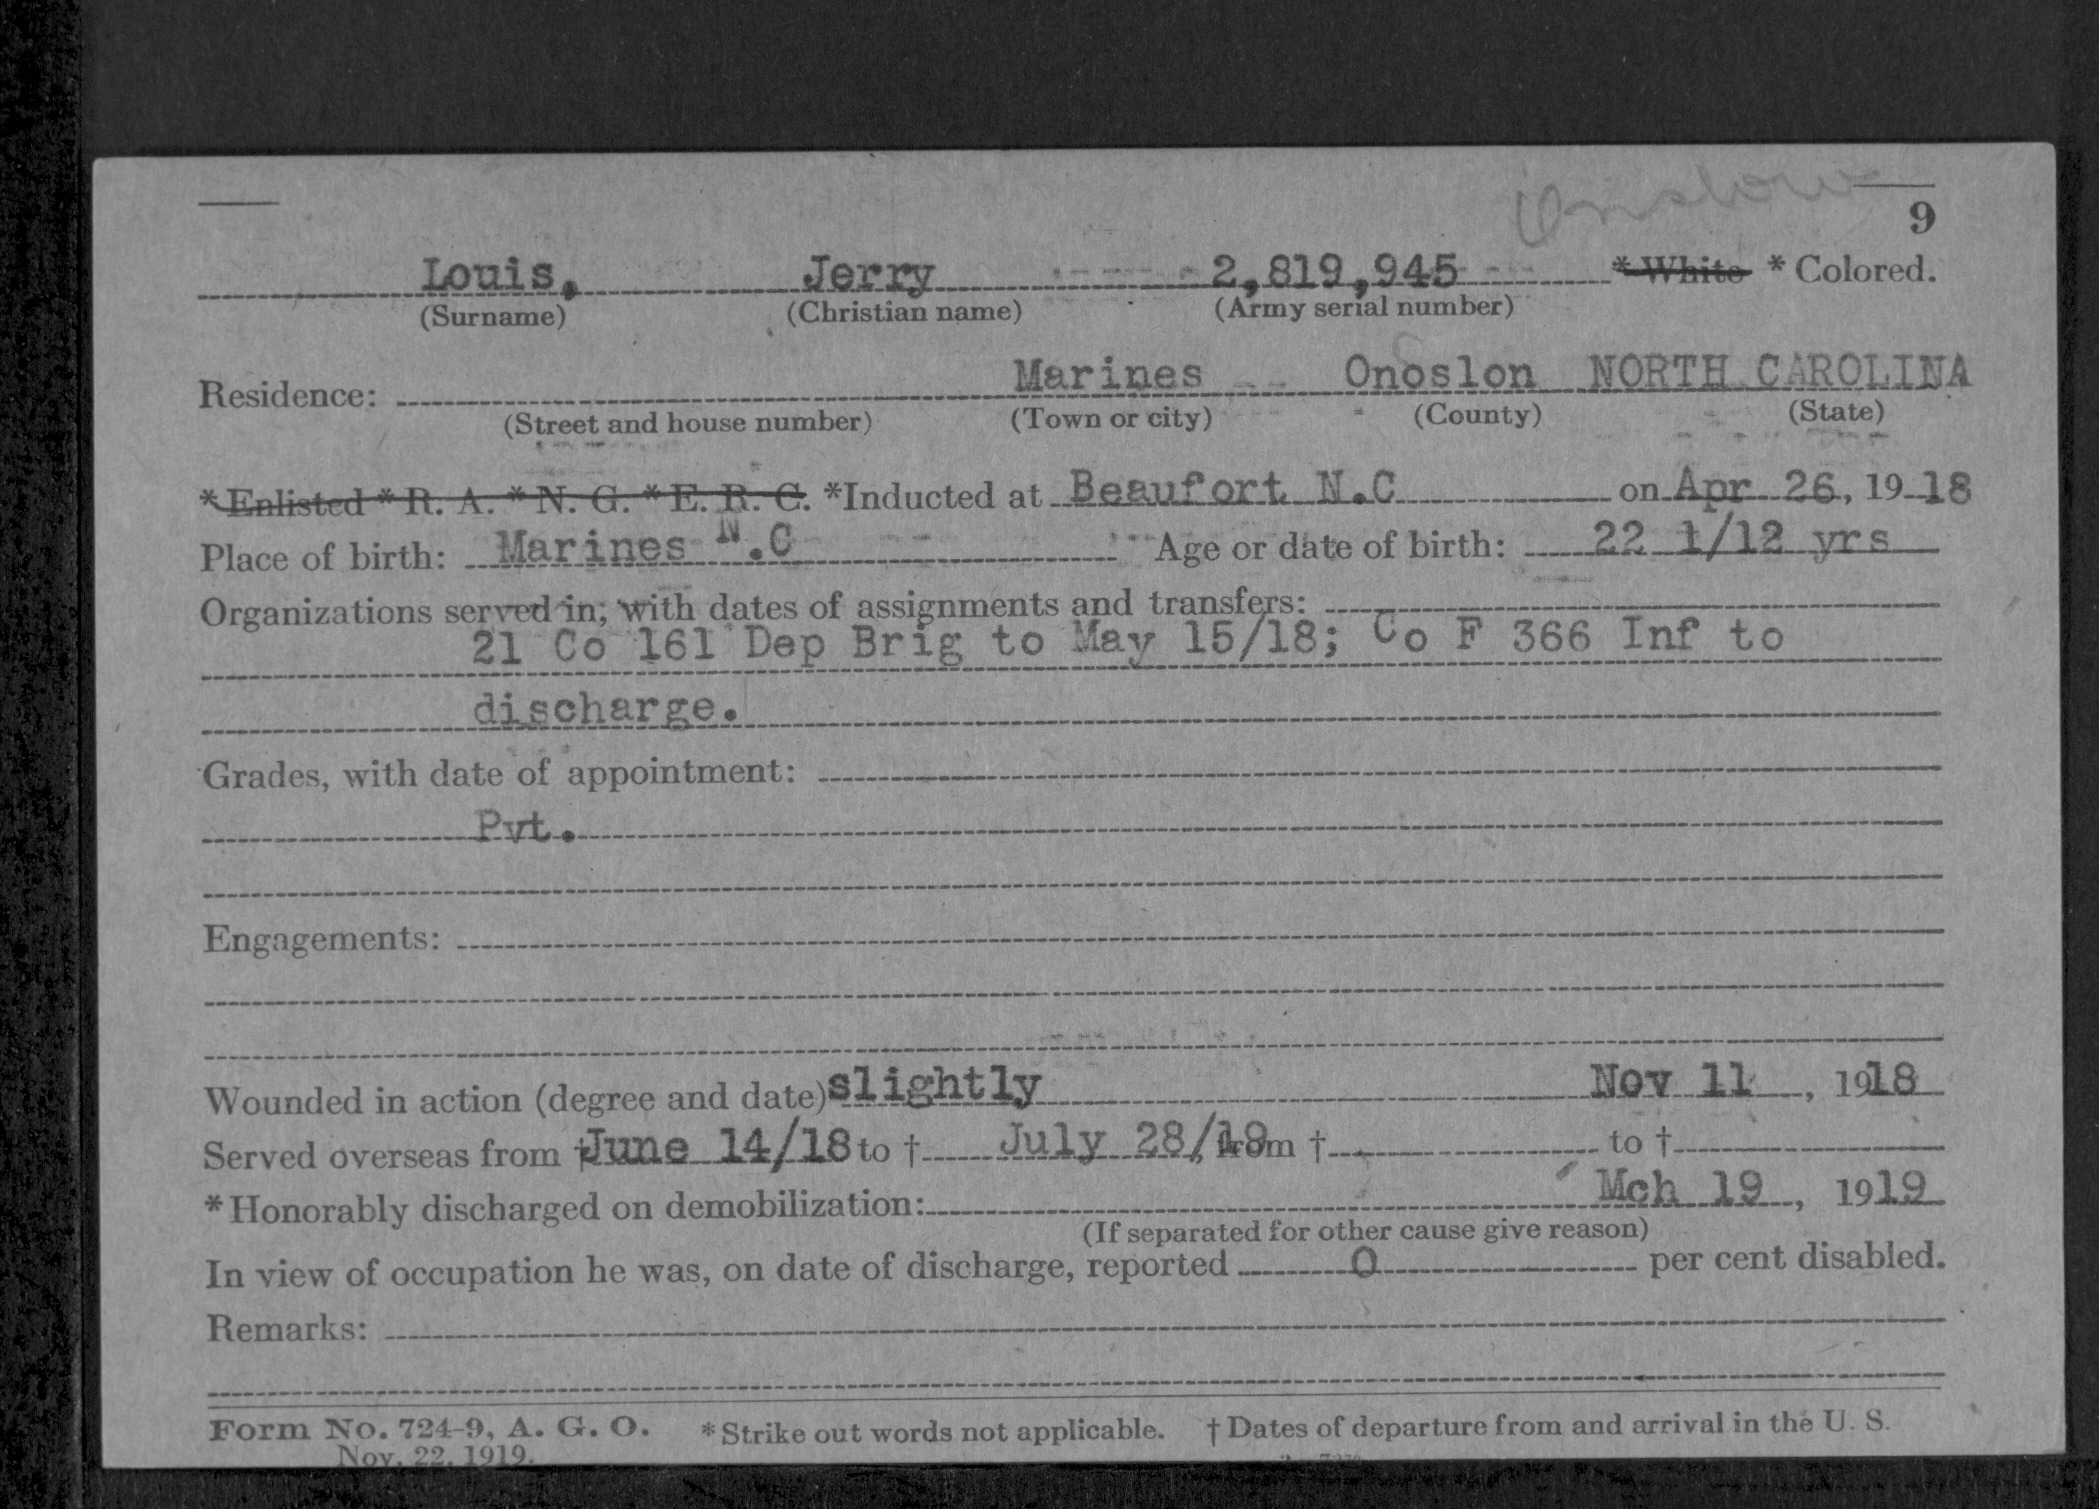 Onslow
9
Louis, Jerry 2,819,945 * White * Colored.
(Surname) (Christian name) (Army serial number)
Marines Onoslon NORTH CAROLINA
Residence:
(Street and house number) (Town or city) (County) (State)
* Enlisted * R. A. * N. G. * E. R. C. *Inducted at Beaufort N.C on Apr 26, 19 18
Place of birth: Marines N.C Age or date of birth: 22 1/12 yrs
Organizations served in, with dates of assignments and transfers:
21 Co 161 Dep Brig to May 15/18; Co F 366 Inf to
discharge.
Grades, with date of appointment:
Pvt.
Engagements:
Wounded in action (degree and date) slightly Nov 11, 1918
Served overseas from † June 14/18 to † July 28/18, from † to †
* Honorably discharged on demobilization: Mch 19, 1919
(If separated for other cause give reason)
In view of occupation he was, on date of discharge, reported 0 per cent disabled.
Remarks:
Form No. 724-9, A. G. O. * Strike out words not applicable. † Dates of departure from and arrival in the U. S.
Nov. 22, 1919.